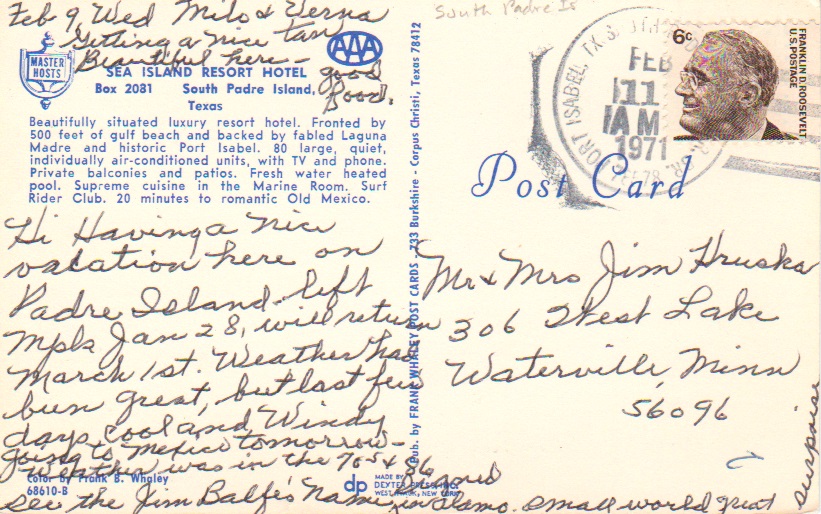 South Padre Is
Feb 9 Wed Milo & Verna
Getting a nice tan
Beautiful here - good food.
MASTER HOSTS
AAA
SEA ISLAND RESORT HOTEL
Box 2081 South Padre Island,
Texas
Beautifully situated luxury resort hotel. Fronted by
500 feet of gulf beach and backed by fabled Laguna
Madre and historic Port Isabel. 80 large, quiet,
individually air-conditioned units, with TV and phone.
Private balconies and patios. Fresh water heated
pool. Supreme cuisine in the Marine Room. Surf
Rider Club. 20 minutes to romantic Old Mexico.
Hi Having a nice
vacation here on
Padre Island - left
Mpls Jan 28, will return
March 1st. Weather has
been great, but last few
days cool and Windy
going to Mexico tomorrow -
Weather was in the 70s & 80
see the Jim Balfe's name signed in Alamo. small world great surprise
Color by Frank B. Whaley
68610-B
Pub. by FRANK WHALEY POST CARDS - 733 Burkshire - Corpus Christi, Texas 78412
dp
MADE BY
DEXTER PRESS, INC.
WEST NYACK, NEW YORK
PORT ISABEL, TX
FEB
11
AM
1971
6c
FRANKLIN D. ROOSEVELT
U.S. POSTAGE
Post Card
Mr & Mrs Jim Hruska
306 West Lake
Waterville, Minn
56096